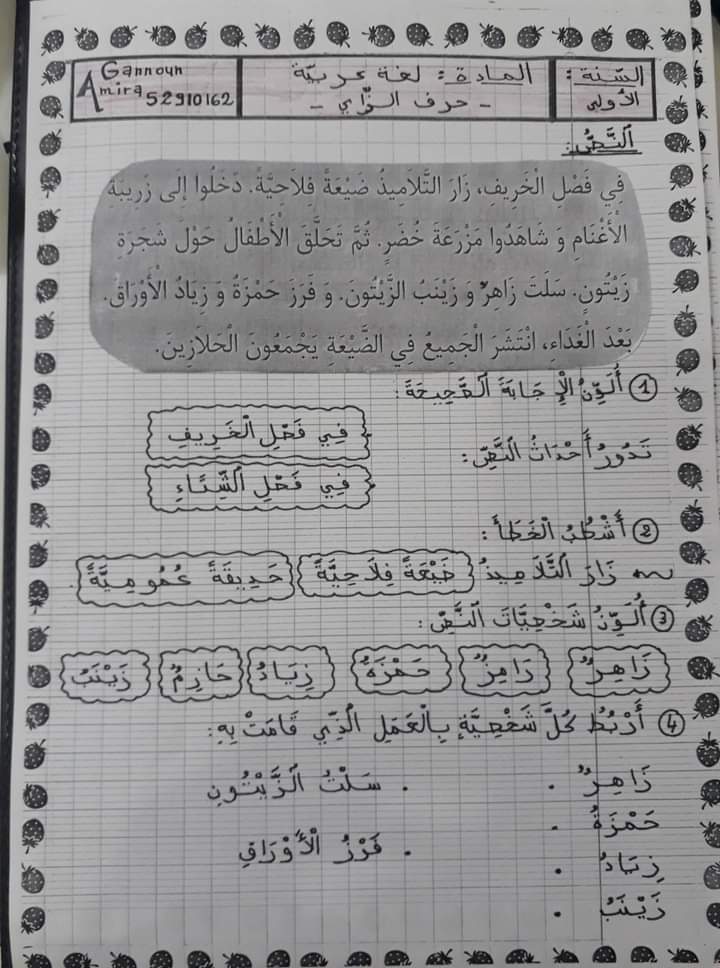 السّنة: المادة: لغة عربيّة Gannoun
الأولى - حرف الزّاي - Amira 52910162
اَلنَّصُّ:
فِي فَصْلِ الْخَرِيفِ، زَارَ التَّلَامِيذُ ضَيْعَةً فِلَاحِيَّةً. دَخَلُوا إِلَى زَرِيبَةِ
الْأَغْنَامِ وَ شَاهَدُوا مَزْرَعَةَ خُضَرٍ. ثُمَّ تَحَلَّقَ الْأَطْفَالُ حَوْلَ شَجَرَةِ
زَيْتُونٍ. سَلَتَ زَاهِرٌ وَ زَيْنَبُ الزَّيْتُونَ. وَ فَرَزَ حَمْزَةُ وَ زِيَادُ الْأَوْرَاقَ.
بَعْدَ الْغَدَاءِ، انْتَشَرَ الْجَمِيعُ فِي الضَّيْعَةِ يَجْمَعُونَ الْحَلَازِينَ.
① أُلَوِّنُ الْإِجَابَةَ الصَّحِيحَةَ:
تَدُورُ أَحْدَاثُ النَّصِّ: فِي فَصْلِ الْخَرِيفِ
فِي فَصْلِ الشِّتَاءِ
② أَشْطُبُ الْخَطَأَ:
زَارَ التَّلَامِيذُ ضَيْعَةً فِلَاحِيَّةً حَدِيقَةً عُمُومِيَّةً.
③ أُلَوِّنُ شَخْصِيَّاتِ النَّصِّ:
زَاهِرٌ رَامِزٌ حَمْزَةُ زِيَادُ حَازِمٌ زَيْنَبُ
④ أَرْبُطُ كُلَّ شَخْصِيَّةٍ بِالْعَمَلِ الَّذِي قَامَتْ بِهِ:
زَاهِرٌ . . سَلْتُ الزَّيْتُونِ
حَمْزَةُ .
زِيَادُ . . فَرْزُ الْأَوْرَاقِ
زَيْنَبُ .